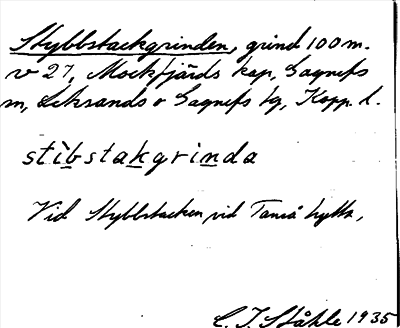 Stybbstackgrinden, grind 100 m.
v 27, Mockfjärds kap, Gagnefs
sn, Leksands o Gagnefs tg, Kopp. l.
stìbstakgrinda
Vid Stybbstacken vid Tanså hytta,
C. I. Ståhle 1935